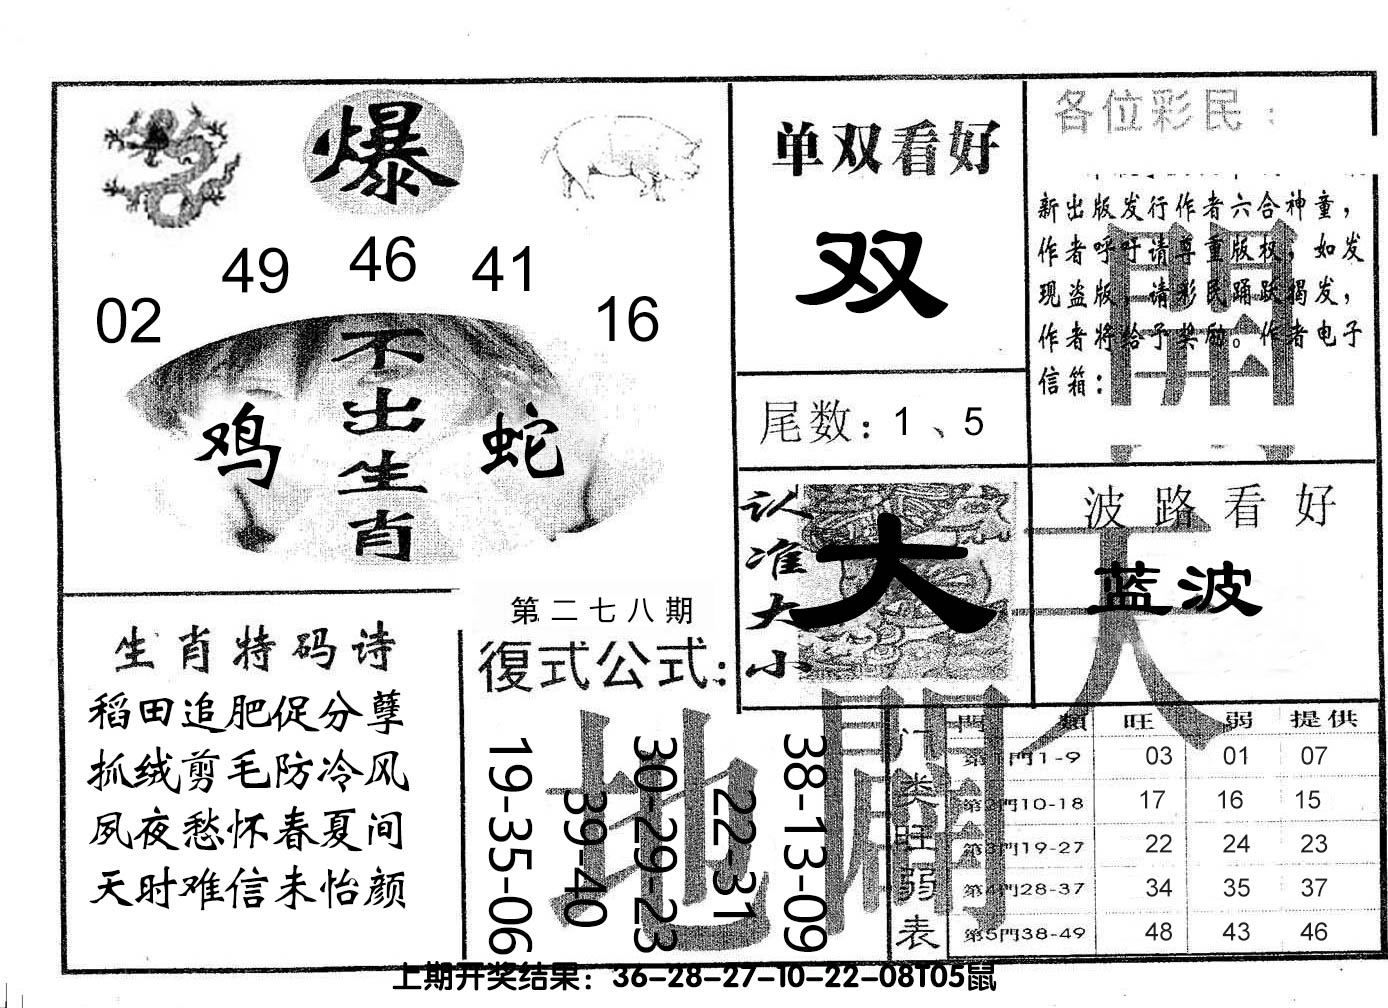 爆
49 46 41
02 16
不出生肖
鸡 蛇
单双看好
双
尾数：1、5
各位彩民：
新出版发行作者六合神童，
作者呼吁请尊重版权，如发
现盗版，请彩民踊跃揭发，
作者将给予奖励。作者电子
信箱：
開
认准大小
大
波路看好
蓝波
天
生肖特码诗
稻田追肥促分孽
抓绒剪毛防冷风
夙夜愁怀春夏间
天时难信未怡颜
第二七八期
復式公式：
19-35-06
39-40
30-29-23
22-31
38-13-09
地
開
门类旺弱表
門類 旺 弱 提供
第1門1-9 03 01 07
第2門10-18 17 16 15
第3門19-27 22 24 23
第4門28-37 34 35 37
第5門38-49 48 43 46
上期开奖结果：36-28-27-10-22-08T05鼠